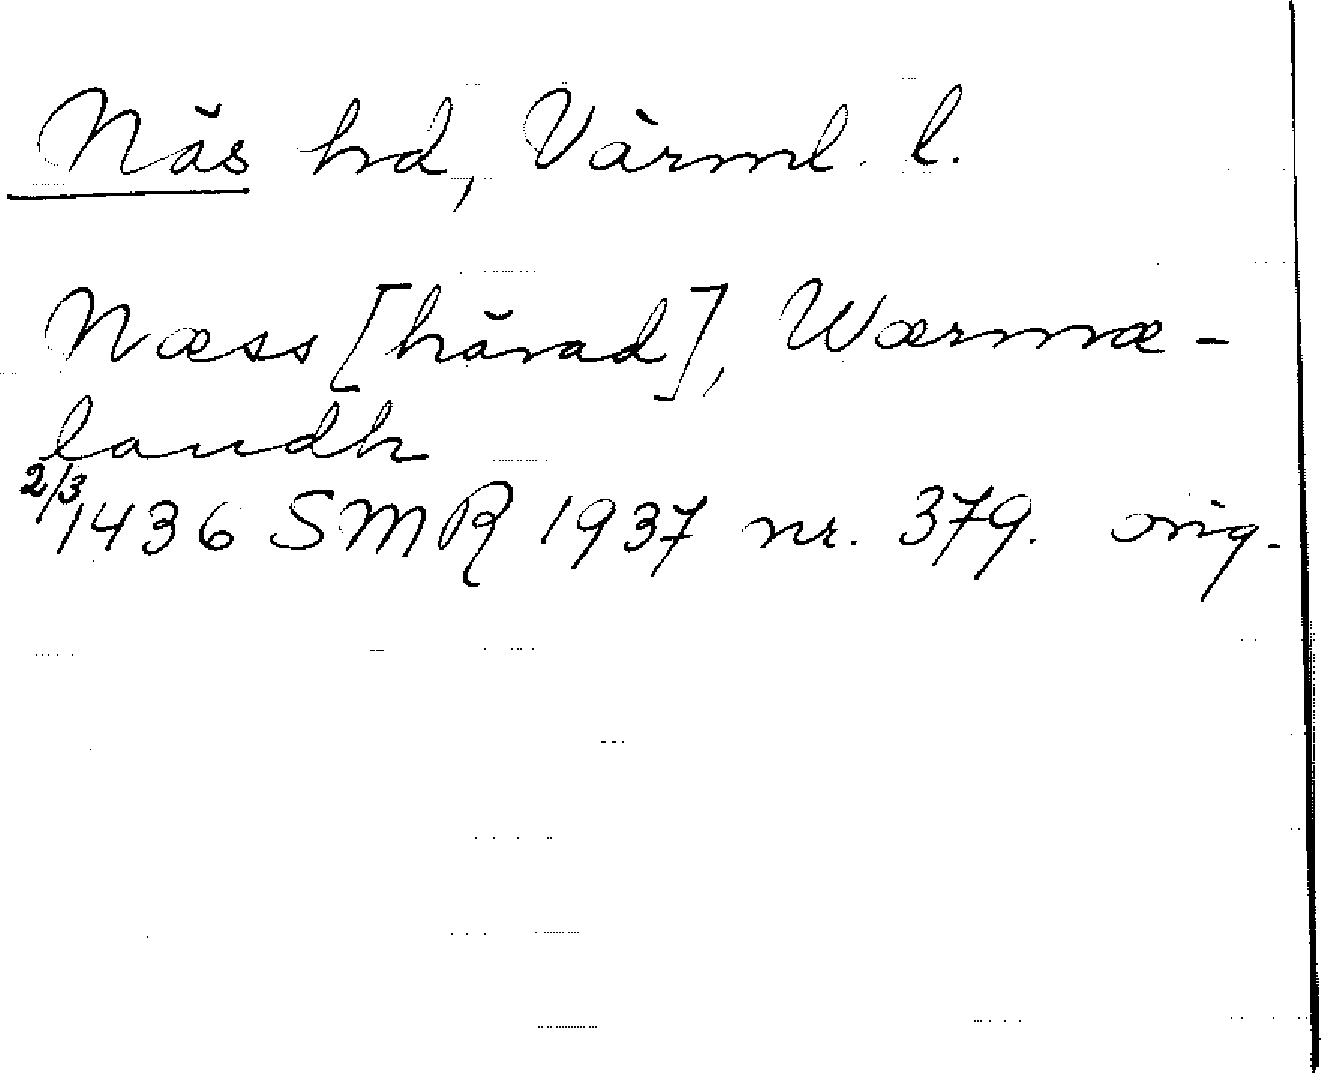 Näs hd, Värml. l.
Næss [härad], Wærmæ-
landh
2/3 1436 SMR 1937 nr. 379. orig.